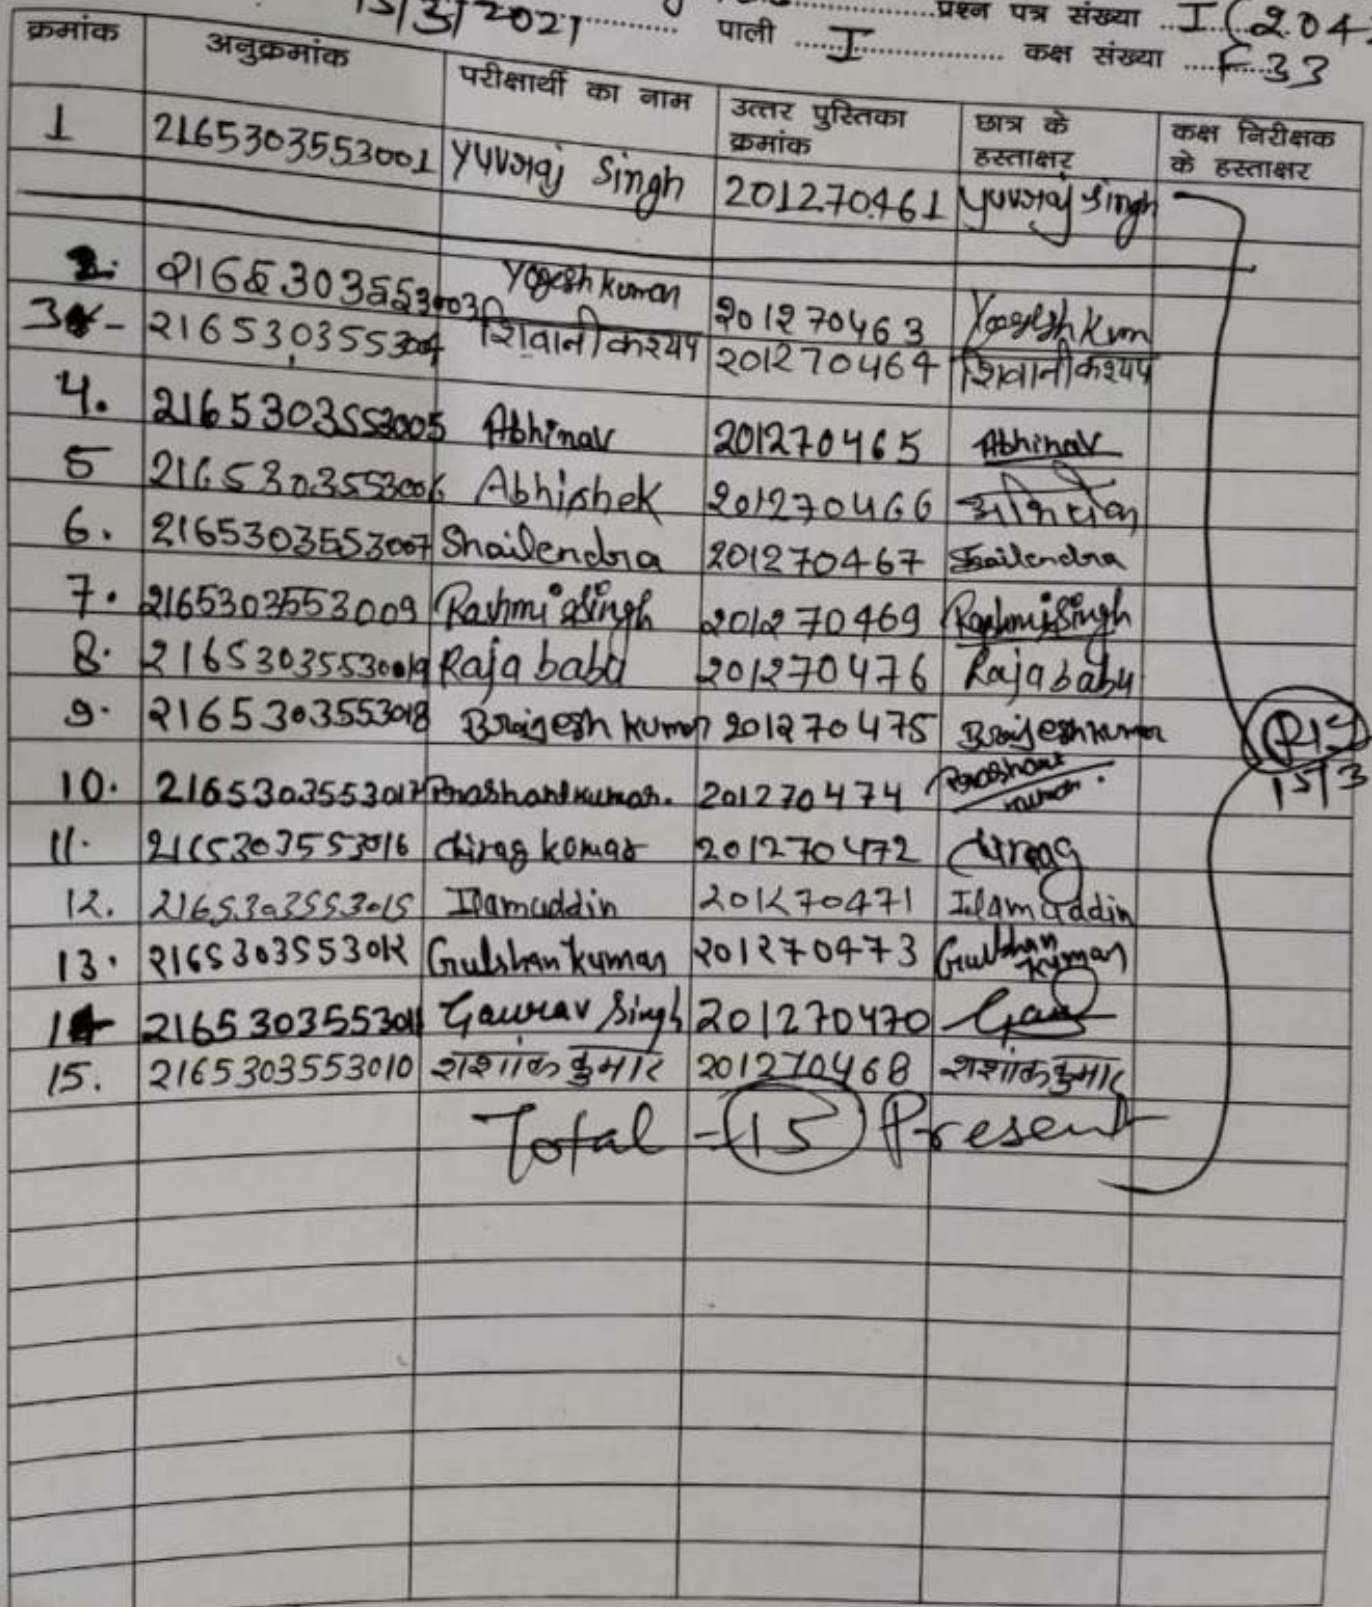 प्रश्न पत्र संख्या I (204
15/3/2021 पाली I कक्ष संख्या F 33
क्रमांक अनुक्रमांक परीक्षार्थी का नाम उत्तर पुस्तिका क्रमांक छात्र के हस्ताक्षर कक्ष निरीक्षक के हस्ताक्षर
1 2165303553001 Yuvraj Singh 201270461 Yuvraj Singh
2. 2165303553003 Yogesh kumar 201270463 Yogesh Kum
3 - 2165303553004 शिवानी कश्यप 201270464 शिवानी कश्यप
4. 2165303553005 Abhinav 201270465 Abhinav
5 2165303553006 Abhishek 201270466 अभिषेक
6. 2165303553007 Shailendra 201270467 Shailendra
7. 2165303553009 Rashmi Singh 201270469 Rashmi Singh
8. 2165303553019 Raja babu 201270476 Raja babu
9. 2165303553018 Brajesh kumar 201270475 Brajesh kumar
10. 2165303553017 Prashant kumar. 201270474 Prashant kumar.
15/3
11. 2165303553016 chirag kumar 201270472 chirag
12. 2165303553015 Ilamuddin 201270471 Ilamuddin
13. 2165303553012 Gulshan kumar 201270473 Gulshan kumar
14 2165303553011 Gaurav Singh 201270470
15. 2165303553010 शशांक कुमार 201270468 शशांक कुमार
Total - 15 Present